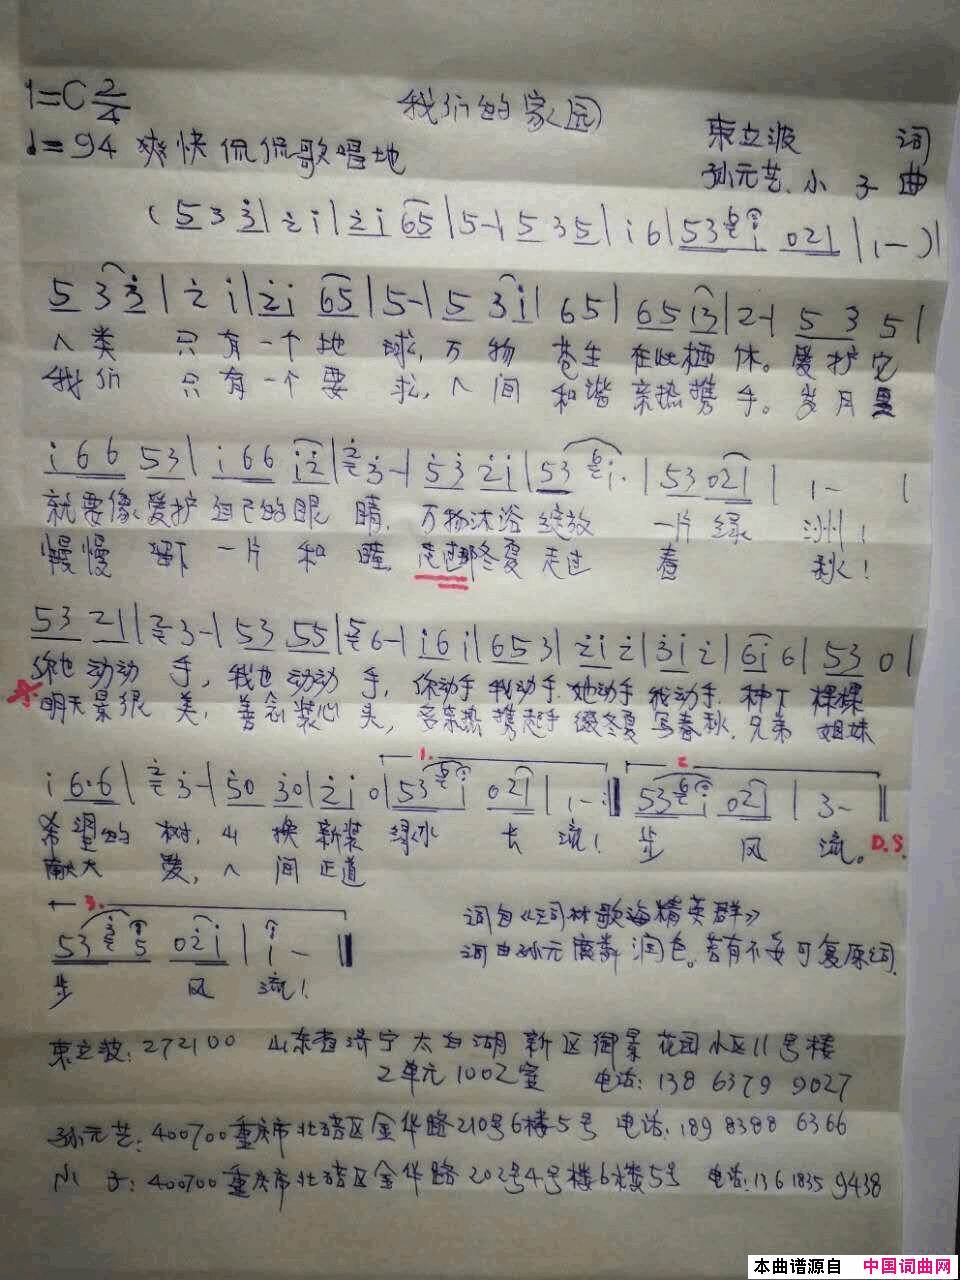 1=C 2/4
我们的家园
♩=94 爽快侃侃歌唱地
束立波 词
孙元艺、小子 曲
(5 3 3̇ | 2̇ i | 2̇ i 65 | 5- | 5 35 | i 6 | 53 i 021 | 1-)|
5 3 3̇ | 2̇ i | 2̇ i 65 | 5- | 5 3 i | 65 | 65 13 | 2- | 5 3 5 |
人类 只有一个地 球,万物 苍生 在此栖 休。爱护它
我们 只有一个要 求,人间 和谐 亲热携 手。岁月里
i 66 53 | i 66 i 2̇ | 3̇- | 5 3 2̇ i | 53 i. | 53 021 | 1- |
就要像爱护自己的眼 睛,万物沐浴 绽放 一片绿 洲!
慢慢 留下一片 和 睦,走过那冬夏 走过 春 秋!
53 21 | 3- | 53 55 | 6- | i 6 i | 65 3 | 2̇ i 2̇ | 3̇ i 2̇ | 6 i 6 | 53 0 |
你也动动 手,我也动动 手,你动手我动手,她动手我动手,种下 棵棵
明天景很 美,善念装心 头,多亲热携起手 冬夏写春秋,兄弟 姐妹
i 6·6 | 3̇- | 50 30 | 2̇ i 0 | 53 i 021 | 1- :‖ 53 i 021 | 3- ‖
1. 2.
希望的 树,山 换新装 绿水 长 流! 步 风 流。D.S.
献大 爱,人间正道
3.
53 5 02̇ i | i - ‖
步 风 流!
词自《词林歌海精英群》
词由孙元 润色。若有不妥可复原词.
束立波:272100 山东省济宁太白湖新区御景花园小区11号楼
2单元1002室 电话:138 6379 9027
孙元艺:400700重庆市北碚区金华路210号6楼5号 电话:189 8388 6366
小 子:400700重庆市北碚区金华路202号4号楼6楼5号 电话:136 1835 9438
本曲谱源自 中国词曲网